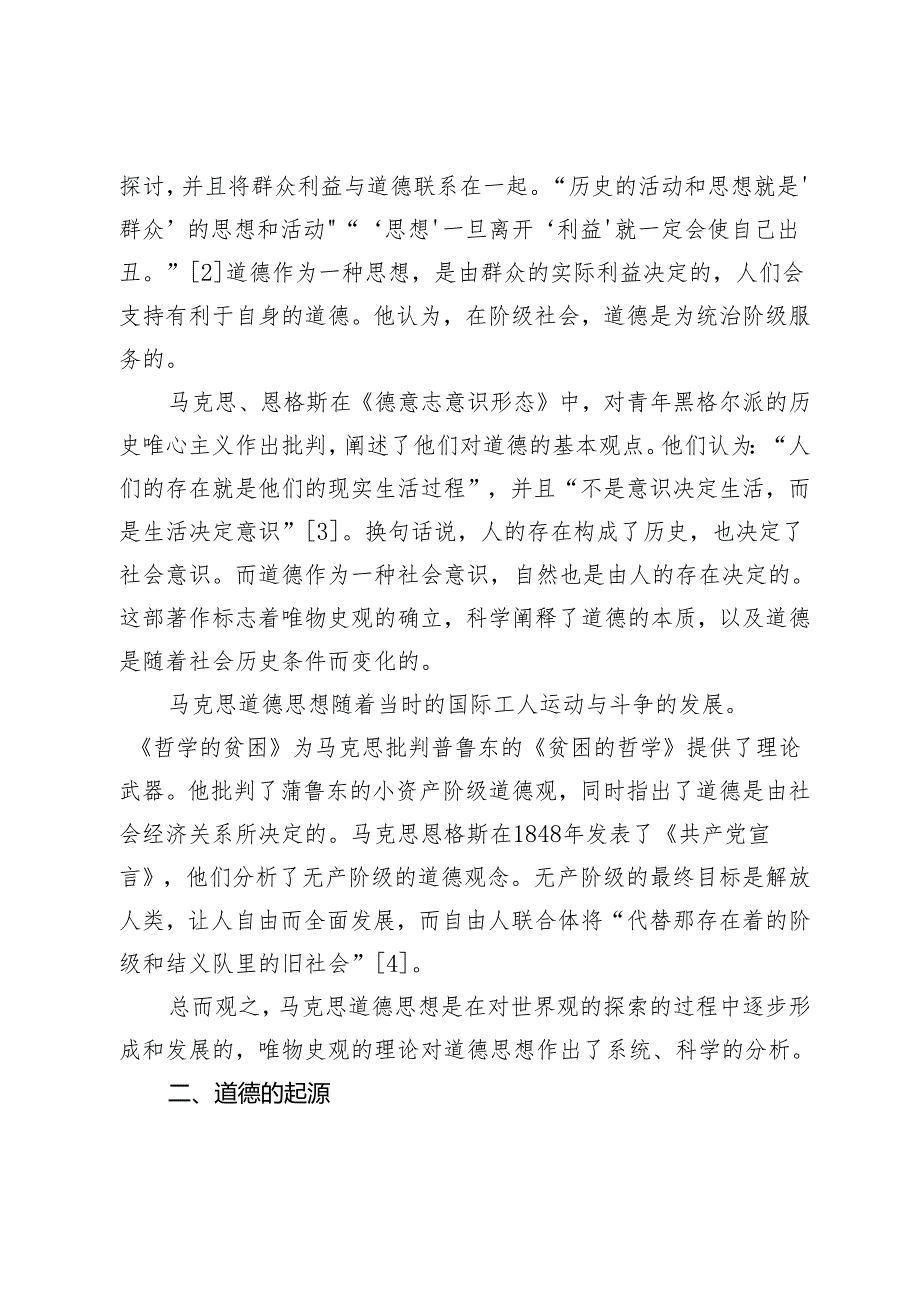 探讨，并且将群众利益与道德联系在一起。“历史的活动和思想就是'
群众’的思想和活动"“‘思想'一旦离开‘利益'就一定会使自己出
丑。”[2]道德作为一种思想，是由群众的实际利益决定的，人们会
支持有利于自身的道德。他认为，在阶级社会，道德是为统治阶级服
务的。
马克思、恩格斯在《德意志意识形态》中，对青年黑格尔派的历
史唯心主义作出批判，阐述了他们对道德的基本观点。他们认为：“人
们的存在就是他们的现实生活过程”，并且“不是意识决定生活，而
是生活决定意识”[3]。换句话说，人的存在构成了历史，也决定了
社会意识。而道德作为一种社会意识，自然也是由人的存在决定的。
这部著作标志着唯物史观的确立，科学阐释了道德的本质，以及道德
是随着社会历史条件而变化的。
马克思道德思想随着当时的国际工人运动与斗争的发展。
《哲学的贫困》为马克思批判普鲁东的《贫困的哲学》提供了理论
武器。他批判了蒲鲁东的小资产阶级道德观，同时指出了道德是由社
会经济关系所决定的。马克思恩格斯在1848年发表了《共产党宣
言》，他们分析了无产阶级的道德观念。无产阶级的最终目标是解放
人类，让人自由而全面发展，而自由人联合体将“代替那存在着的阶
级和结义队里的旧社会”[4]。
总而观之，马克思道德思想是在对世界观的探索的过程中逐步形
成和发展的，唯物史观的理论对道德思想作出了系统、科学的分析。
二、道德的起源